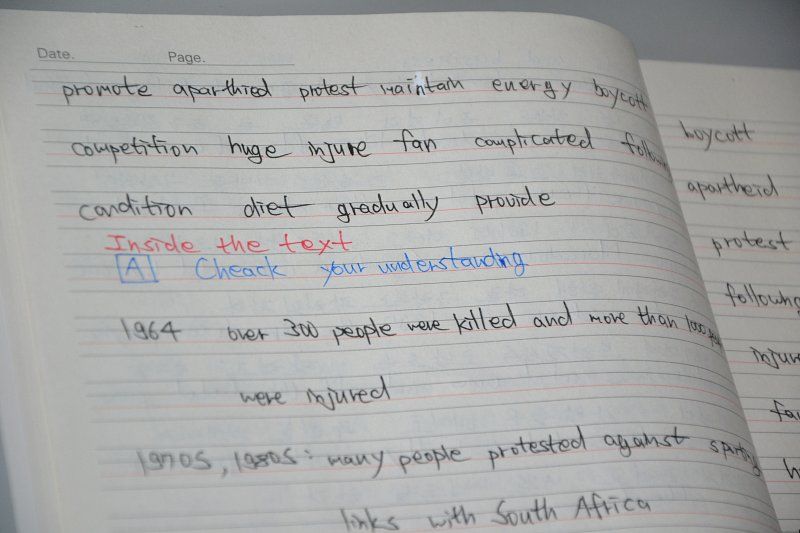 Date. Page.
promote aparthied protest maintain energy boycott
competition huge injure fan complicated
condition diet gradually provide
Inside the text
A Cheack your understanding
1964 over 300 people were killed and more than 1000
were injured
1970s, 1980s: many people protested against sporting
links with South Africa
boycott
apartheid
protest